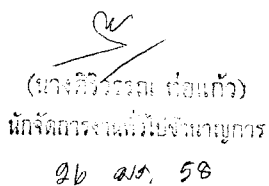 (นางศิริวรรณ ต่อแก้ว)
นักจัดการงานทั่วไปชำนาญการ
26 พ.ย. 58